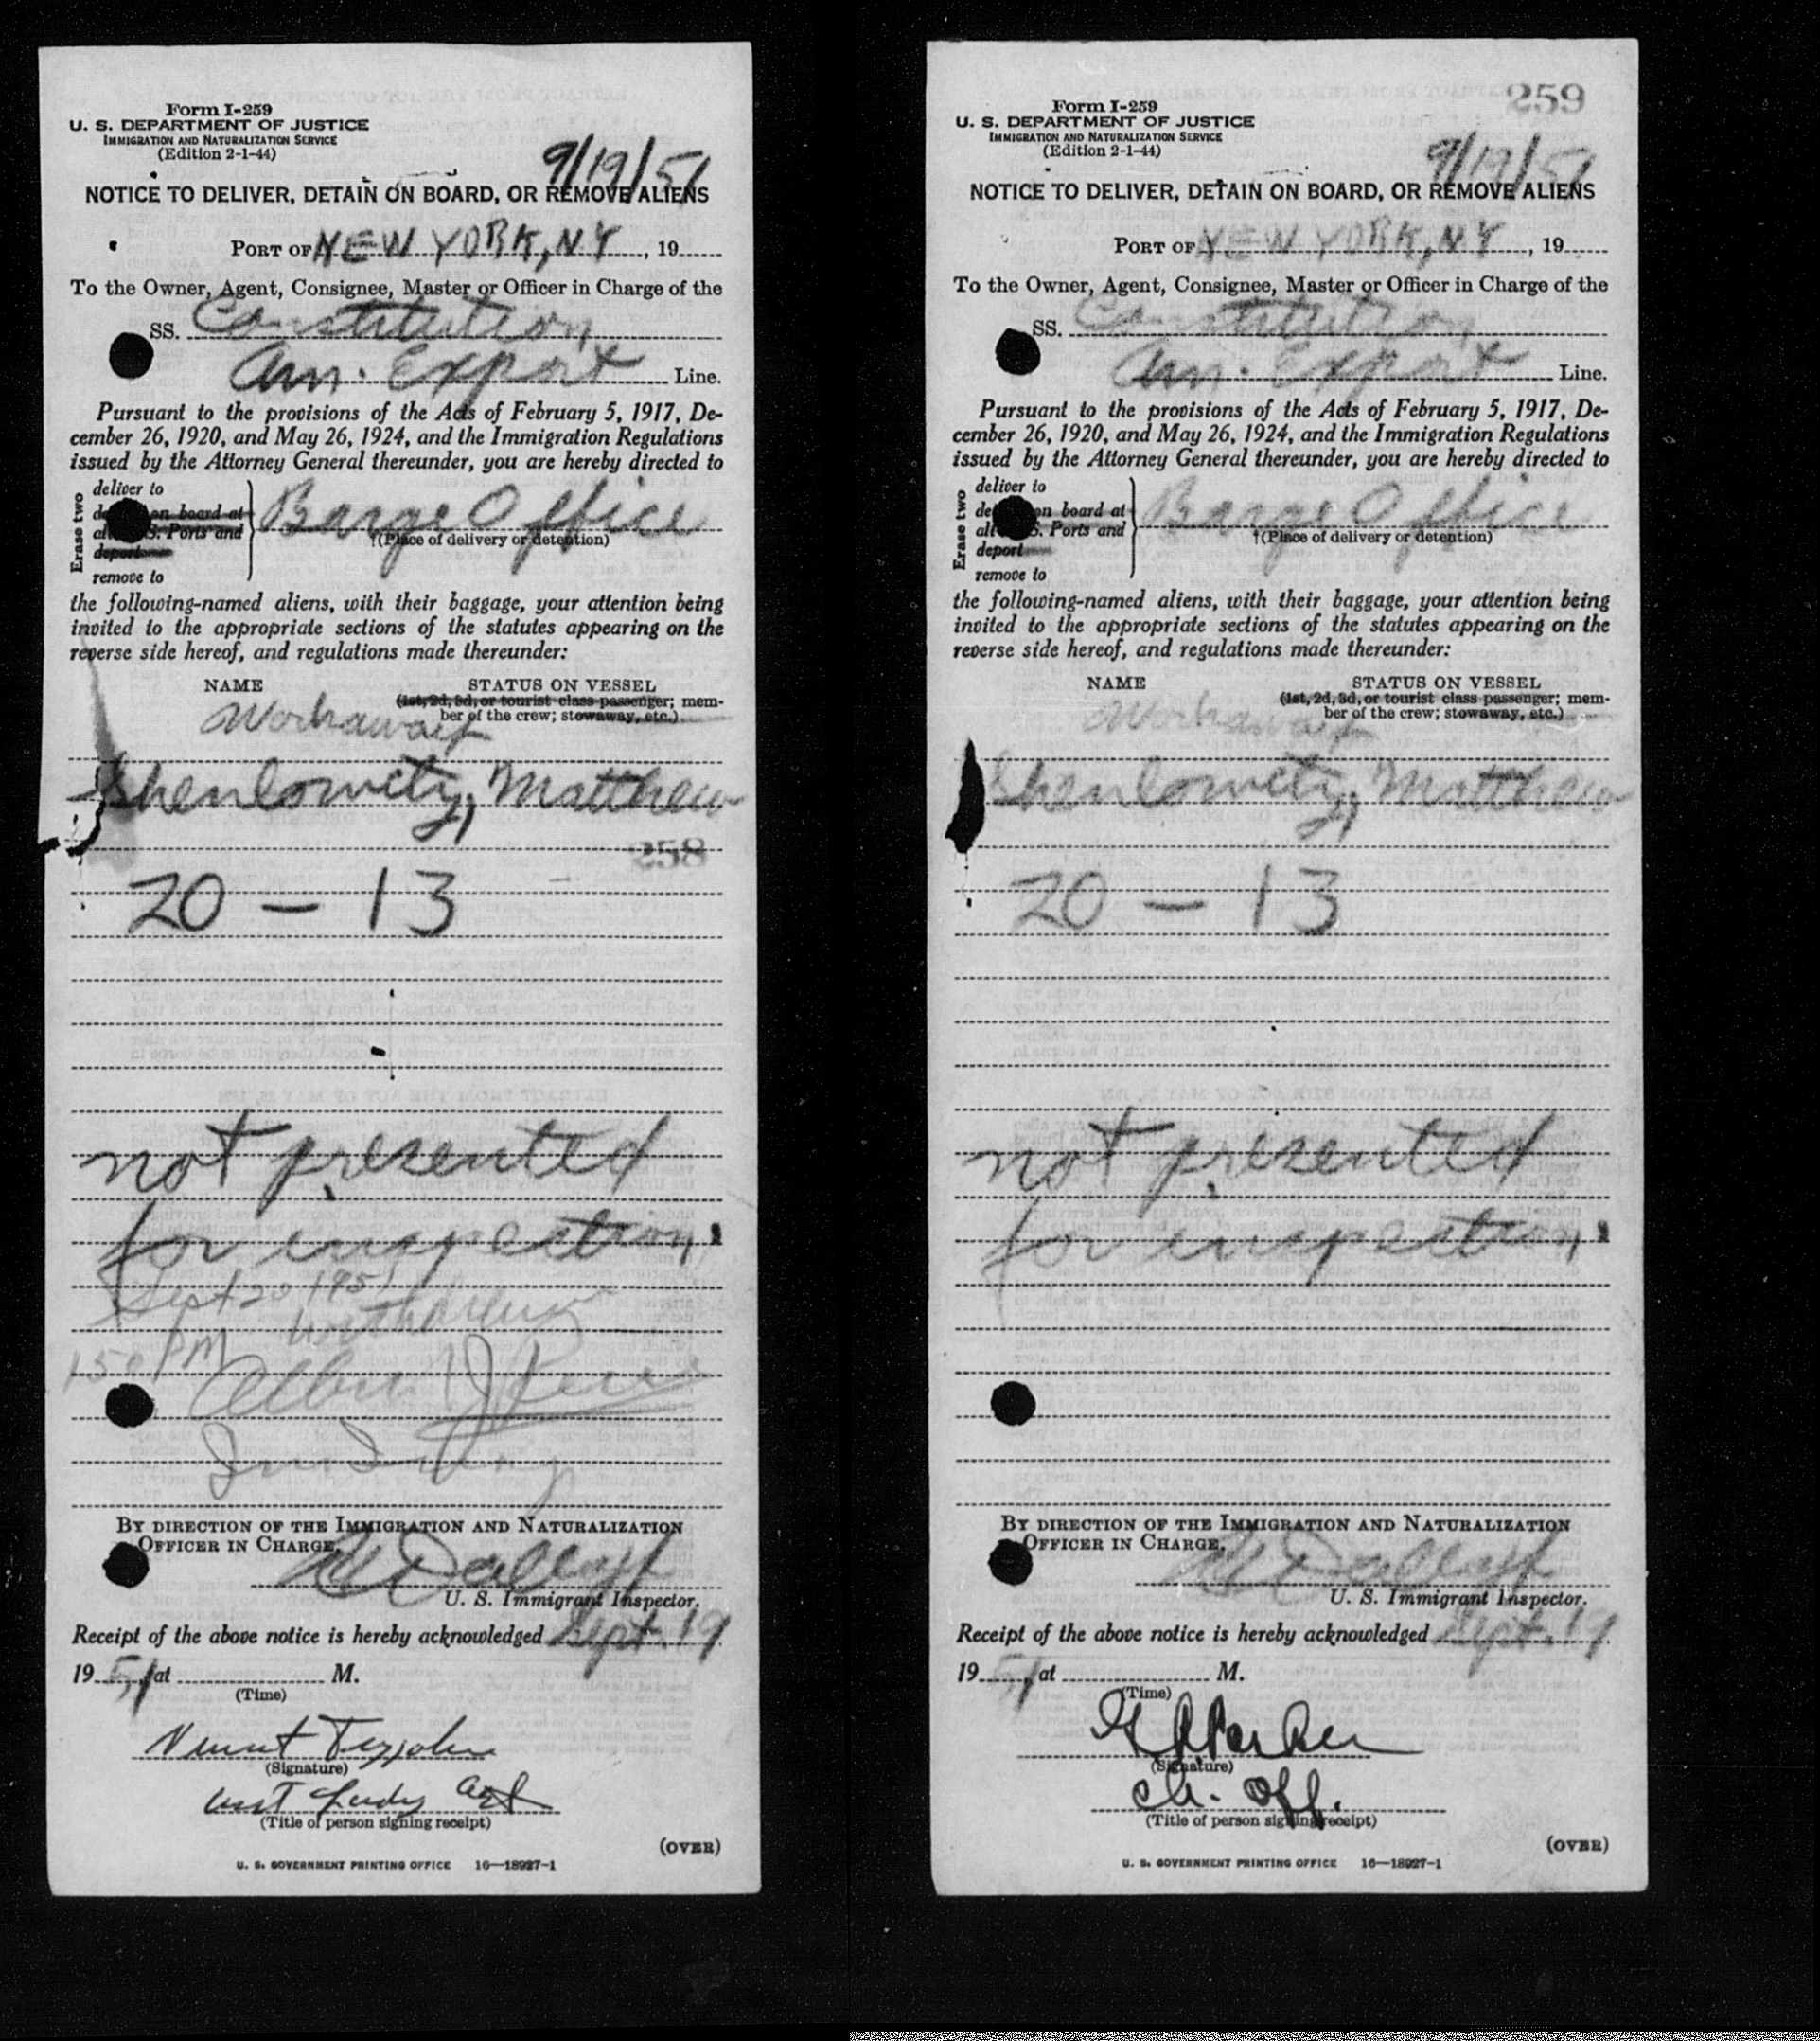 Form I-259
U. S. DEPARTMENT OF JUSTICE
IMMIGRATION AND NATURALIZATION SERVICE
(Edition 2-1-44)
9/19/51
NOTICE TO DELIVER, DETAIN ON BOARD, OR REMOVE ALIENS
PORT OF NEW YORK, N.Y, 19
To the Owner, Agent, Consignee, Master or Officer in Charge of the
SS. Constitution
Am. Export Line.
Pursuant to the provisions of the Acts of February 5, 1917, De-
cember 26, 1920, and May 26, 1924, and the Immigration Regulations
issued by the Attorney General thereunder, you are hereby directed to
Erase two
deliver to
on board at
S. Ports and
deport
remove to
Barge Office
†(Place of delivery or detention)
the following-named aliens, with their baggage, your attention being
invited to the appropriate sections of the statutes appearing on the
reverse side hereof, and regulations made thereunder:
NAME STATUS ON VESSEL
(1st, 2d, 3d, or tourist class passenger; mem-
ber of the crew; stowaway, etc.)
Workaway
Matthew
258
20 - 13
not presented
for inspection
Sept 20 1951
PM
BY DIRECTION OF THE IMMIGRATION AND NATURALIZATION
OFFICER IN CHARGE,
U. S. Immigrant Inspector.
Receipt of the above notice is hereby acknowledged Sept. 19
19 51 at M.
(Time)
(Signature)
(Title of person signing receipt)
(OVER)
U. S. GOVERNMENT PRINTING OFFICE 16—18927-1
259
Form I-259
U. S. DEPARTMENT OF JUSTICE
IMMIGRATION AND NATURALIZATION SERVICE
(Edition 2-1-44)
9/19/51
NOTICE TO DELIVER, DETAIN ON BOARD, OR REMOVE ALIENS
PORT OF NEW YORK, N.Y, 19
To the Owner, Agent, Consignee, Master or Officer in Charge of the
SS. Constitution
Am. Export Line.
Pursuant to the provisions of the Acts of February 5, 1917, De-
cember 26, 1920, and May 26, 1924, and the Immigration Regulations
issued by the Attorney General thereunder, you are hereby directed to
Erase two
deliver to
on board at
S. Ports and
deport
remove to
Barge Office
†(Place of delivery or detention)
the following-named aliens, with their baggage, your attention being
invited to the appropriate sections of the statutes appearing on the
reverse side hereof, and regulations made thereunder:
NAME STATUS ON VESSEL
(1st, 2d, 3d, or tourist class passenger; mem-
ber of the crew; stowaway, etc.)
Workaway
Matthew
20 - 13
not presented
for inspection
BY DIRECTION OF THE IMMIGRATION AND NATURALIZATION
OFFICER IN CHARGE,
U. S. Immigrant Inspector.
Receipt of the above notice is hereby acknowledged Sept. 19
19 51 at M.
(Time)
Parker
(Signature)
Ch. Off.
(Title of person signing receipt)
(OVER)
U. S. GOVERNMENT PRINTING OFFICE 16—18927-1